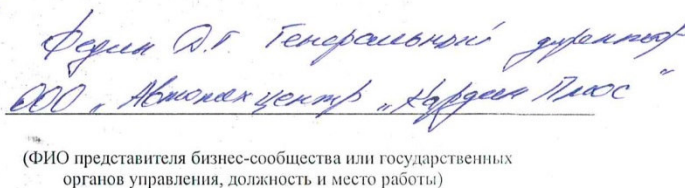 Федин Д.Г. Генеральный директор
ООО „Автотехцентр „Кардан Плюс“
(ФИО представителя бизнес-сообщества или государственных
органов управления, должность и место работы)